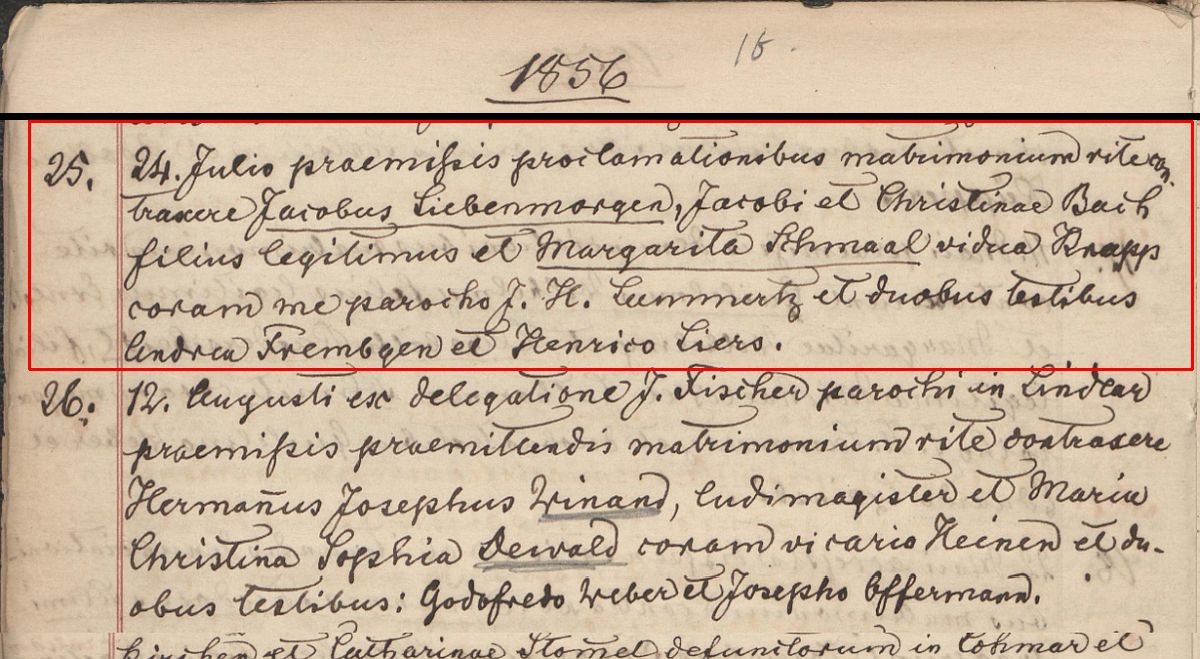 1856
18.
25. 24. Julio praemissis proclamationibus matrimonium rite con-
traxere Jacobus Liebenmorgen, Jacobi et Christinae Bach
filius legitimus et Margarita Schmaal vidua Knapp
coram me parocho J. H. Lummertz et duobus testibus
Andrea Frembgen et Henrico Liers.
26. 12. Augusti ex delegatione J. Fischer parochi in Lindlar
praemissis praemittendis matrimonium rite contraxere
Hermañus Josephus Winand, ludimagister et Maria
Christina Sophia Dewald coram vicario Heinen et du-
obus testibus: Godofredo Weber et Josepho Offermann.
Kirchen et Catharinae Stomel defunctorum in Lohmar et